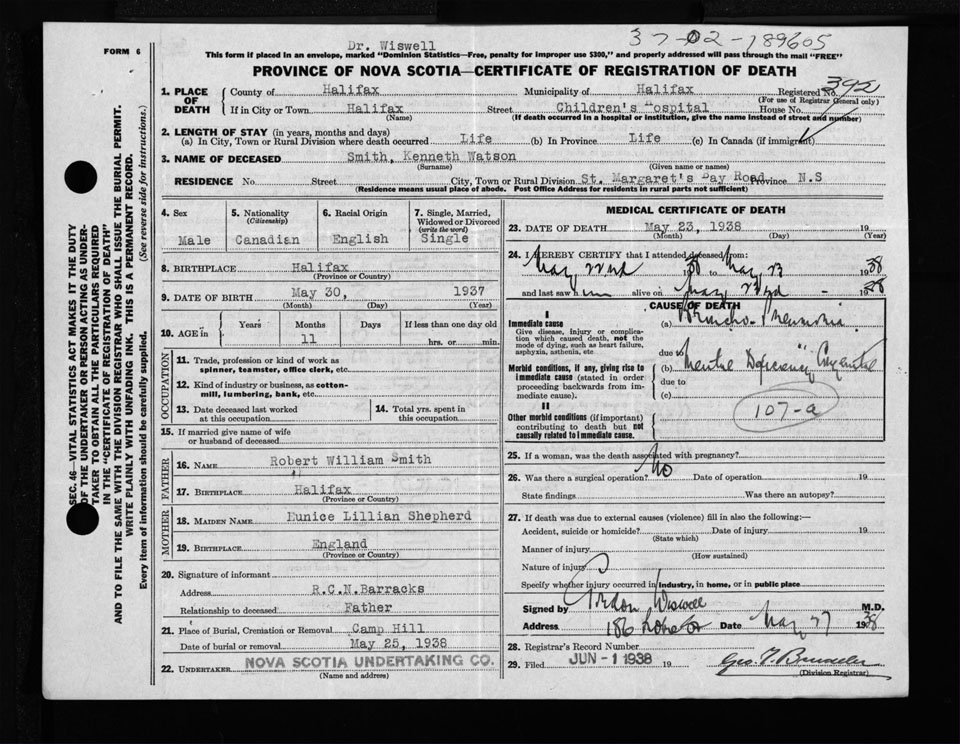 FORM 6
Dr. Wiswell
37-02-189605
This form if placed in an envelope, marked "Dominion Statistics—Free, penalty for improper use $300," and properly addressed will pass through the mail "FREE"
PROVINCE OF NOVA SCOTIA—CERTIFICATE OF REGISTRATION OF DEATH
392
1. PLACE OF DEATH
County of Halifax Municipality of Halifax Registered No.
(For use of Registrar General only)
If in City or Town Halifax Street Children's Hospital House No.
(Name) (If death occurred in a hospital or institution, give the name instead of street and number)
2. LENGTH OF STAY (in years, months and days)
(a) In City, Town or Rural Division where death occurred Life (b) In Province Life (c) In Canada (if immigrant)
3. NAME OF DECEASED Smith, Kenneth Watson
(Surname) (Given name or names)
RESIDENCE No. Street City, Town or Rural Division St. Margaret's Bay Road Province N.S
(Residence means usual place of abode. Post Office Address for residents in rural parts not sufficient)
4. Sex
Male
5. Nationality
(Citizenship)
Canadian
6. Racial Origin
English
7. Single, Married, Widowed or Divorced
(write the word)
Single
8. BIRTHPLACE Halifax
(Province or Country)
9. DATE OF BIRTH May 30, 1937
(Month) (Day) (Year)
10. AGE in
Years Months Days If less than one day old
11 hrs. or min.
OCCUPATION
11. Trade, profession or kind of work as
spinner, teamster, office clerk, etc.
12. Kind of industry or business, as cotton-
mill, lumbering, bank, etc.
13. Date deceased last worked
at this occupation
14. Total yrs. spent in
this occupation
15. If married give name of wife
or husband of deceased
FATHER
16. NAME Robert William Smith
17. BIRTHPLACE Halifax
(Province or Country)
MOTHER
18. MAIDEN NAME Eunice Lillian Shepherd
19. BIRTHPLACE England
(Province or Country)
20. Signature of informant
Address R.C.N.Barracks
Relationship to deceased Father
21. Place of Burial, Cremation or Removal Camp Hill
Date of burial or removal May 25, 1938
22. UNDERTAKER NOVA SCOTIA UNDERTAKING CO.
(Name and address)
MEDICAL CERTIFICATE OF DEATH
23. DATE OF DEATH May 23, 1938 19
(Month) (Day) (Year)
24. I HEREBY CERTIFY that I attended deceased from:
May 22nd 38 to May 23 1938
and last saw him alive on May 23rd - 1938
CAUSE OF DEATH
I
Immediate cause
Give disease, injury or complication which caused death, not the mode of dying, such as heart failure, asphyxia, asthenia, etc
(a) Broncho-Pneumonia
due to
Morbid conditions, if any, giving rise to immediate cause (stated in order proceeding backwards from immediate cause).
(b) Mental Deficiency Congenital
due to
(c)
107-a
II
Other morbid conditions (if important) contributing to death but not causally related to immediate cause.
25. If a woman, was the death associated with pregnancy?
26. Was there a surgical operation? No Date of operation 19
State findings Was there an autopsy?
27. If death was due to external causes (violence) fill in also the following:—
Accident, suicide or homicide? Date of injury 19
(State which)
Manner of injury
(How sustained)
Nature of injury
Specify whether injury occurred in industry, in home, or in public place
Signed by Gordon Wiswell M.D.
Address 186 Date May 27 1938
28. Registrar's Record Number
29. Filed JUN - 1 1938 19
(Division Registrar)
SEC. 46—VITAL STATISTICS ACT MAKES IT THE DUTY
OF THE UNDERTAKER OR PERSON ACTING AS UNDER-
TAKER TO OBTAIN ALL THE PARTICULARS REQUIRED
IN THE "CERTIFICATE OF REGISTRATION OF DEATH"
AND TO FILE THE SAME WITH THE DIVISION REGISTRAR WHO SHALL ISSUE THE BURIAL PERMIT.
WRITE PLAINLY WITH UNFADING INK. THIS IS A PERMANENT RECORD.
Every item of information should be carefully supplied. (See reverse side for instructions.)